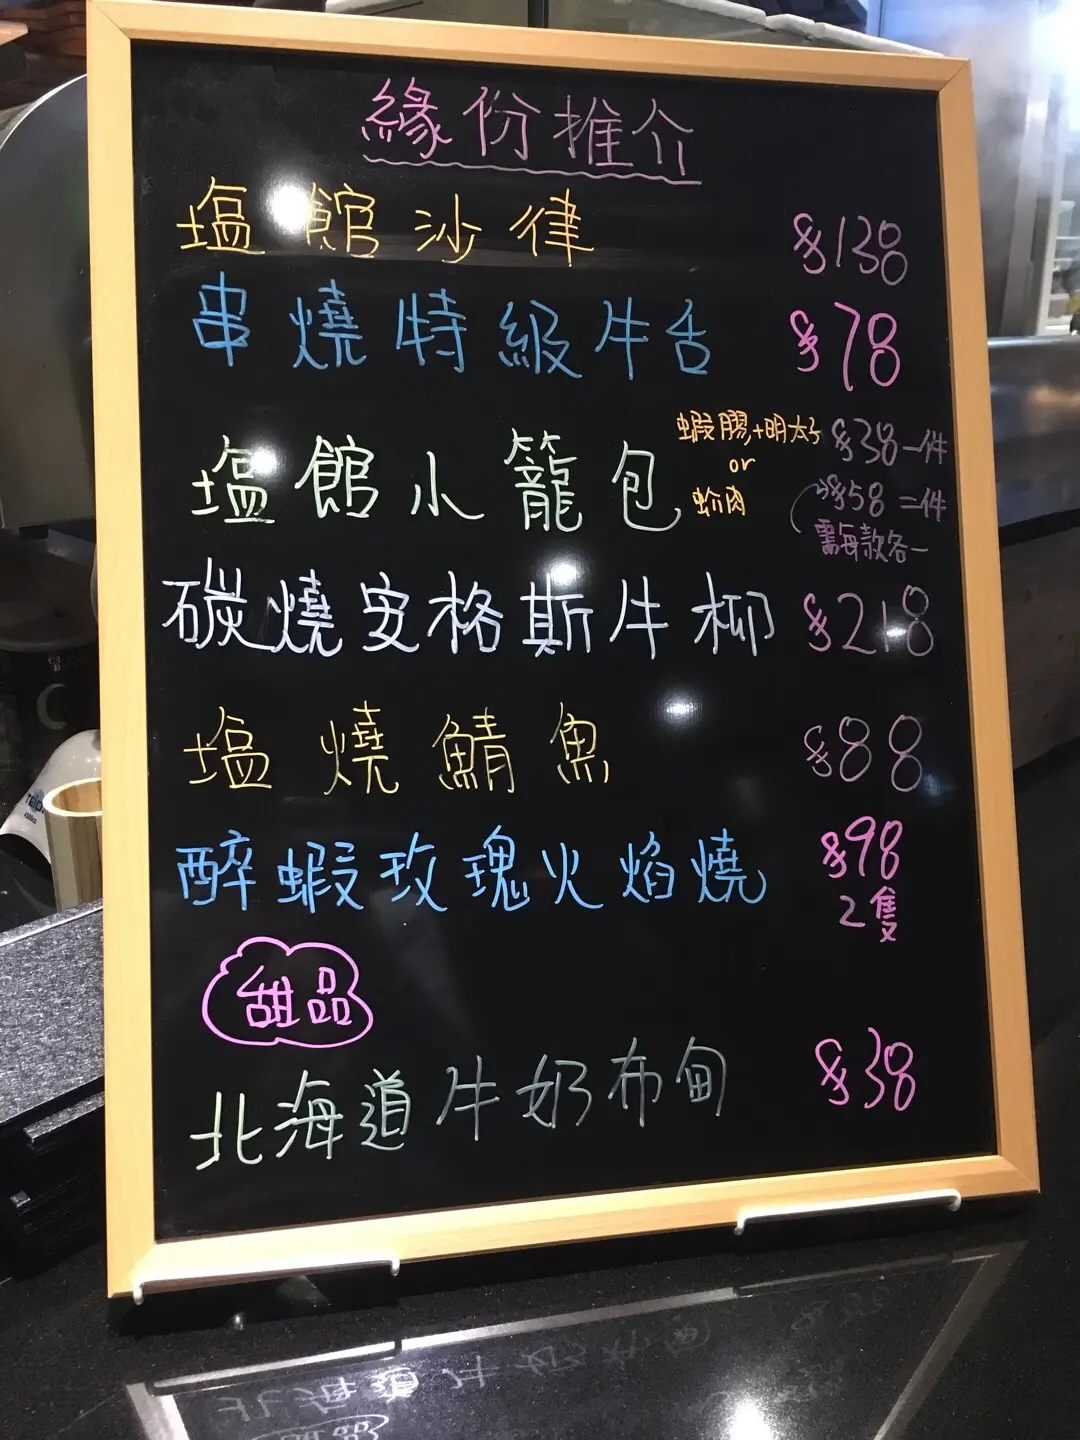 緣份推介
塩館沙律 $138
串燒特級牛舌 $78
塩館小籠包 蝦膠+明太子 or 蚧肉 $38一件
$58二件
需每款各一
碳燒安格斯牛柳 $218
塩燒鯖魚 $88
醉蝦玫瑰火焰燒 $98
2隻
甜品
北海道牛奶布甸 $38